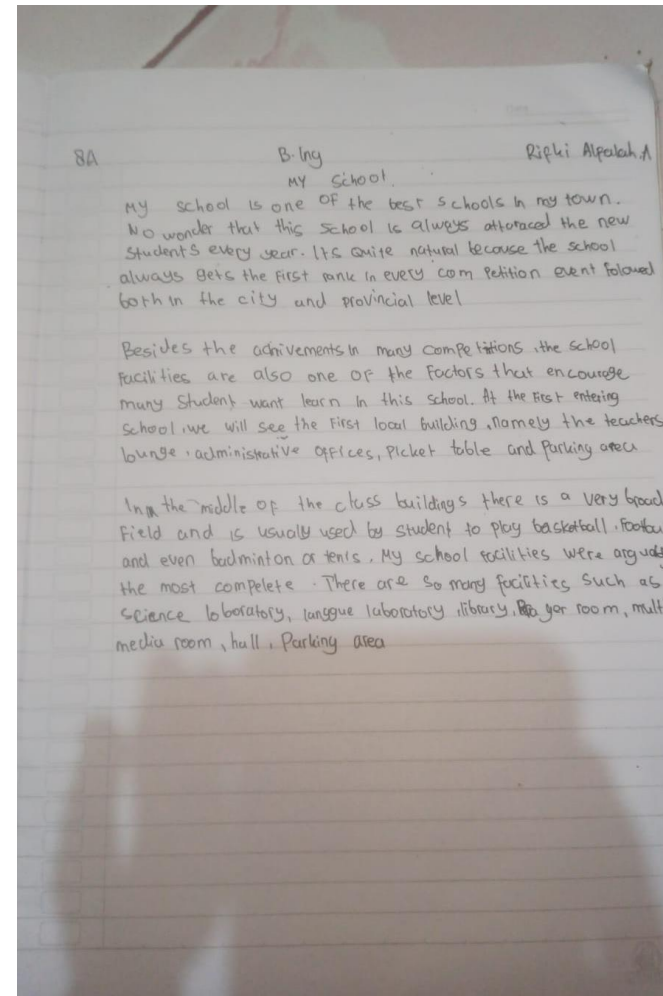 8A B. Ing Rifki Alfalah. A
MY School.
My school is one of the best schools in my town.
No wonder that this school is always attoraced the new
students every year. Its quite natural becouse the school
always gets the first rank in every com petition event folowed
both in the city and provincial level
Besides the achivements in many competitions, the school
facilities are also one of the factors that encourage
many student want learn in this school. At the first entering
school, we will see the first local building, namely the teachers
lounge, administrative offices, picket table and parking area
In the middle of the class buildings there is a very broad
field and is usually used by student to play basketball, footbal
and even badminton or tenis. My school facilities were arguab
the most compelete. There are so many facilities such as
science loboratory, langgue laboratory, library, yer room, mult
media room, hall, Parking area